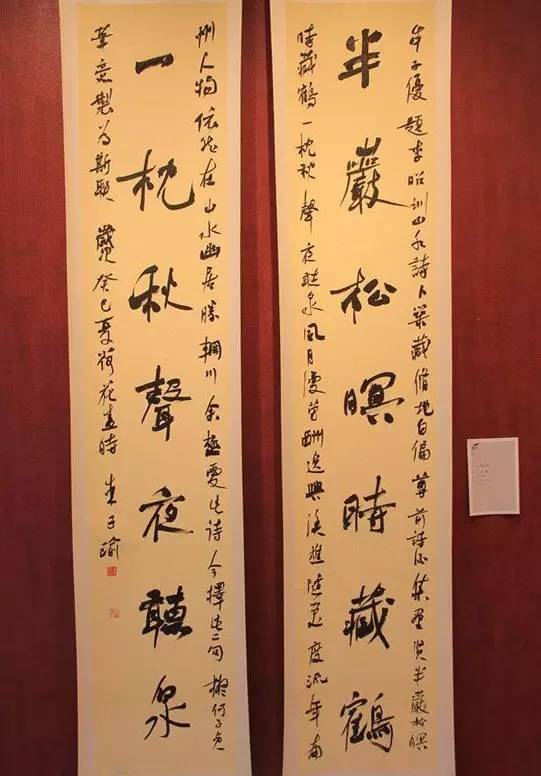 牟子優題李昭訓山水詩卜築藏脩地自偏尊前詩酒集群賢半巖松暝
半巖松暝時藏鶴
時藏鶴一枕秋聲夜聽泉風月漫勞酬逸興漁樵隨處度流年南
州人物依然在山水幽居勝輞川余極愛此詩今擇此二句擬何子貞
一枕秋聲夜聽泉
筆意製為斯聯 歲次癸巳夏荷花盛時 朱子瑜